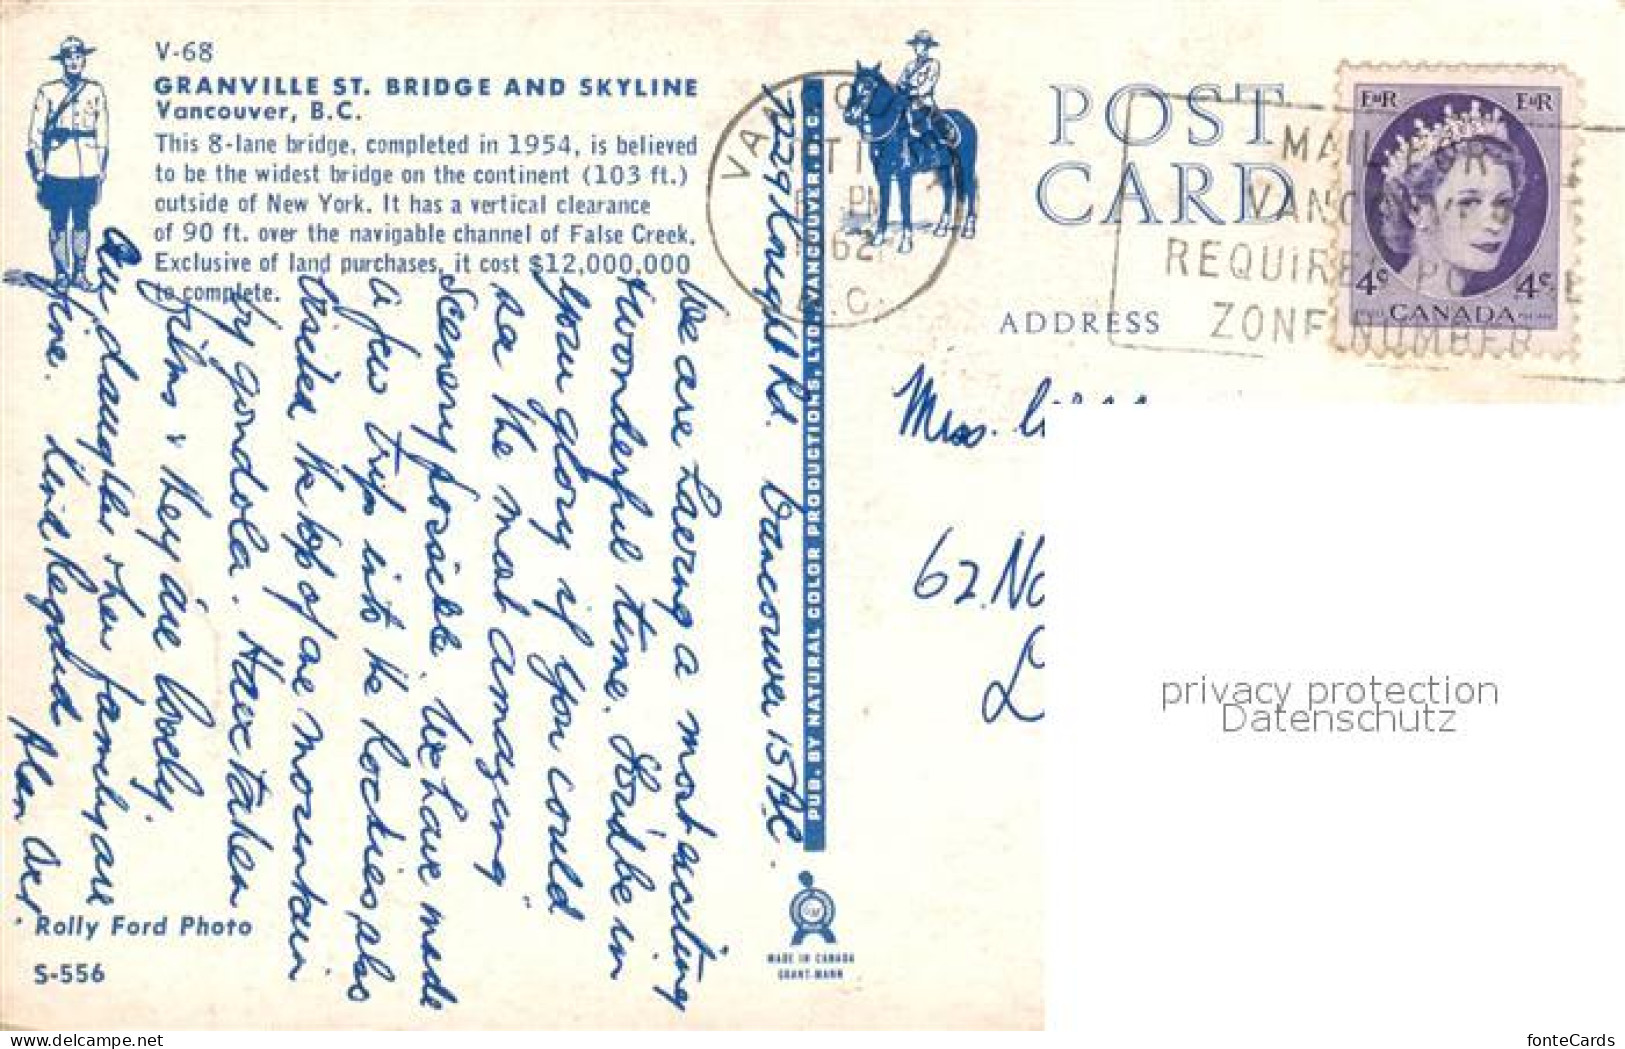 V-68
GRANVILLE ST. BRIDGE AND SKYLINE
Vancouver, B.C.
This 8-lane bridge, completed in 1954, is believed
to be the widest bridge on the continent (103 ft.)
outside of New York. It has a vertical clearance
of 90 ft. over the navigable channel of False Creek.
Exclusive of land purchases, it cost $12,000,000
to complete.
Vancouver 15 BC.
We are having a most exciting
& wonderful time. Should be in
your glory if you could
see the most amazing
Scenery possible. We have made
a few trips into the Rockies, also
visited the top of one mountain
by gondola. Have taken
films & they are lovely.
Our daughter & her family are
fine. Kind Regards
Rolly Ford Photo
S-556
PUB. BY NATURAL COLOR PRODUCTIONS, LTD. VANCOUVER, B.C.
MADE IN CANADA
GRANT-MANN
POST
CARD
ADDRESS
VANCOUVER
PM
62
B.C.
MAIL FOR
VANCOUVER
REQUIRES POSTAL
ZONE NUMBER
EIIR EIIR
4c 4c
CANADA
Miss.
62.
privacy protection
Datenschutz
www.delcampe.net
fonteCards